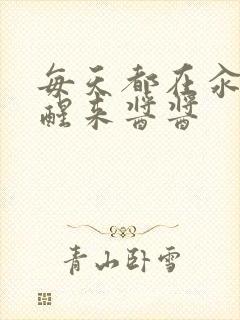 每天都在汆
醒来酱酱
青山卧雪